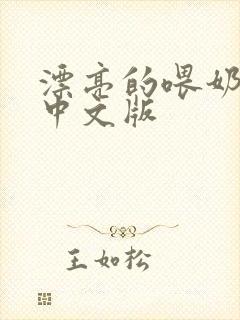 漂亮的喂奶
中文版
王如松